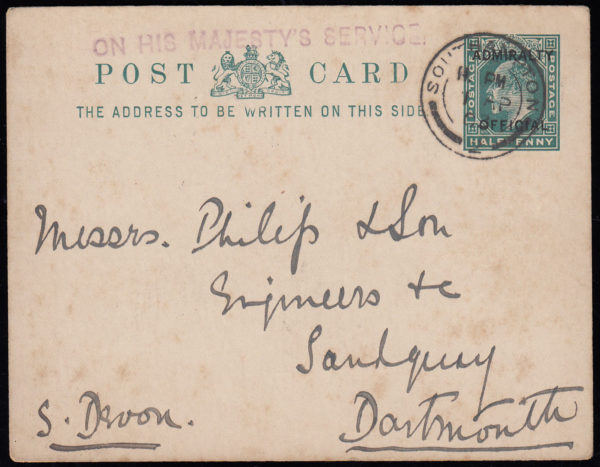 ON HIS MAJESTY'S SERVICE.
POST CARD
THE ADDRESS TO BE WRITTEN ON THIS SIDE
ADMIRALTY
OFFICIAL
POSTAGE
POSTAGE
HALFPENNY
SOUTHAMPTON
PM
Messrs. Philip & Son
Engineers &c
Sandquay
Dartmouth
S. Devon.